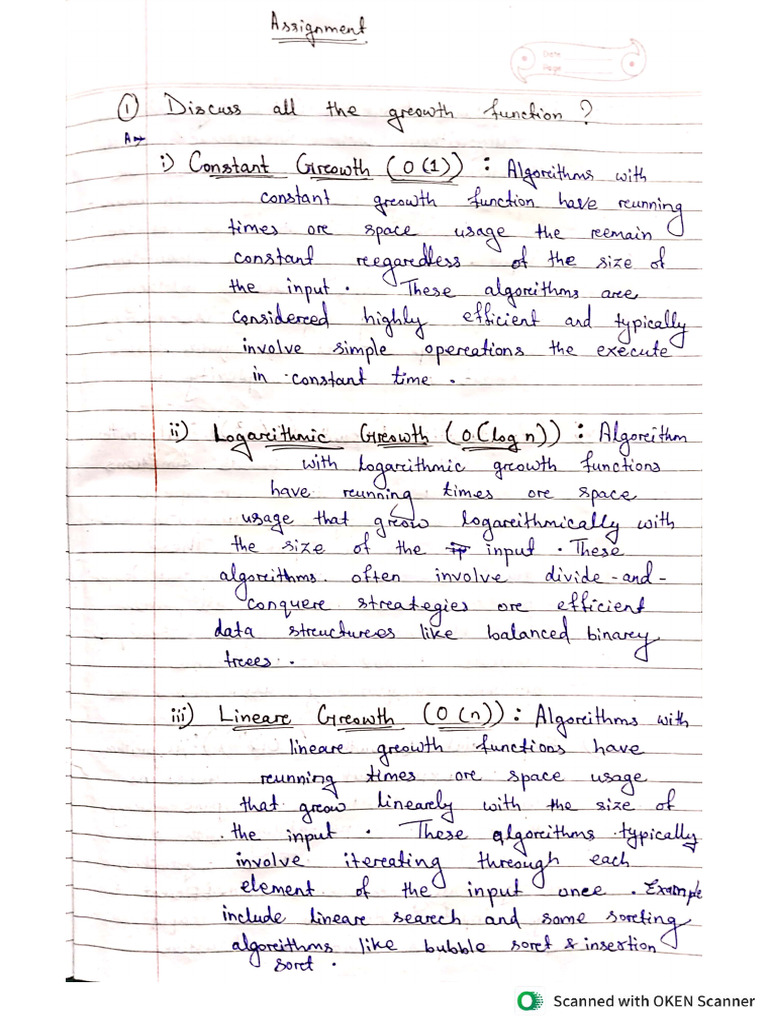 Assignment
Date
Page
① Discuss all the growth function ?
A→
i) Constant Growth (O(1)) : Algorithms with
constant growth function have running
times or space usage the remain
constant regardless of the size of
the input . These algorithms are
considered highly efficient and typically
involve simple operations the execute
in constant time .
ii) Logarithmic Growth (O(log n)) : Algorithm
with logarithmic growth functions
have running times or space
usage that grow logarithmically with
the size of the input . These
algorithms often involve divide-and-
conquer strategies or efficient
data structures like balanced binary
trees .
iii) Linear Growth (O(n)) : Algorithms with
linear growth functions have
running times or space usage
that grow linearly with the size of
the input . These algorithms typically
involve iterating through each
element of the input once . Example
include linear search and some sorting
algorithms like bubble sort & insertion
sort .
Scanned with OKEN Scanner